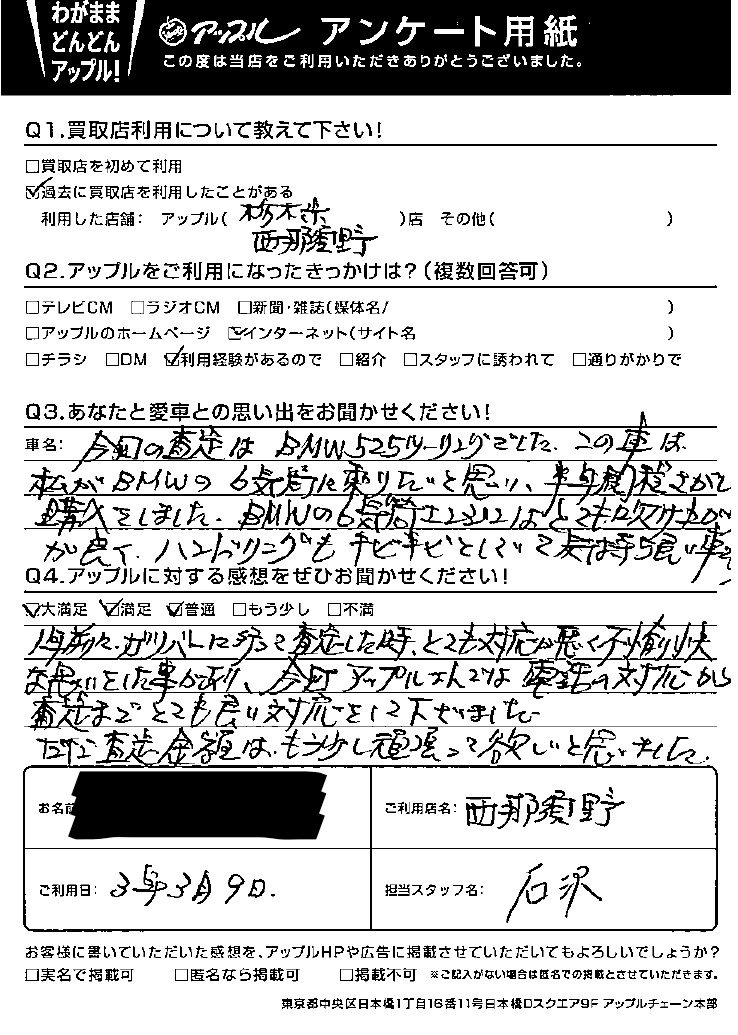 わがまま
どんどん
アップル!
アップル アンケート用紙
この度は当店をご利用いただきありがとうございました。
Q1.買取店利用について教えて下さい!
□買取店を初めて利用
☑過去に買取店を利用したことがある
利用した店舗: アップル( 栃木県 西那須野 )店 その他( )
Q2.アップルをご利用になったきっかけは?(複数回答可)
□テレビCM □ラジオCM □新聞・雑誌(媒体名/ )
□アップルのホームページ ☑インターネット(サイト名 )
□チラシ □DM ☑利用経験があるので □紹介 □スタッフに誘われて □通りがかりで
Q3.あなたと愛車との思い出をお聞かせください!
車名: 今回の査定はBMW525ツーリングでした。この車は
私がBMWの6気筒に乗りたいと思い、半年間程さがして
購入をしました。BMWの6気筒エンジンはとても吹け上がり
が良く、ハンドリングもキビキビとしていて
Q4.アップルに対する感想をぜひお聞かせください!
☑大満足 ☑満足 ☑普通 □もう少し □不満
1年前々、ガリバーに行って査定した時、とても対応が悪く不愉快
な思いをした事があり、今回アップルさんでは電話の対応から
査定までとても良い対応をして下さいました
ただ査定金額は、もう少し頑張って欲しいと思いました。
お名前
ご利用店名: 西那須野
ご利用日: 3年3月9日.
担当スタッフ名: 石沢
お客様に書いていただいた感想を、アップルHPや広告に掲載させていただいてもよろしいでしょうか?
□実名で掲載可 □匿名なら掲載可 □掲載不可 ※ご記入がない場合は匿名での掲載とさせていただきます。
東京都中央区日本橋1丁目16番11号日本橋Dスクエア9F アップルチェーン本部